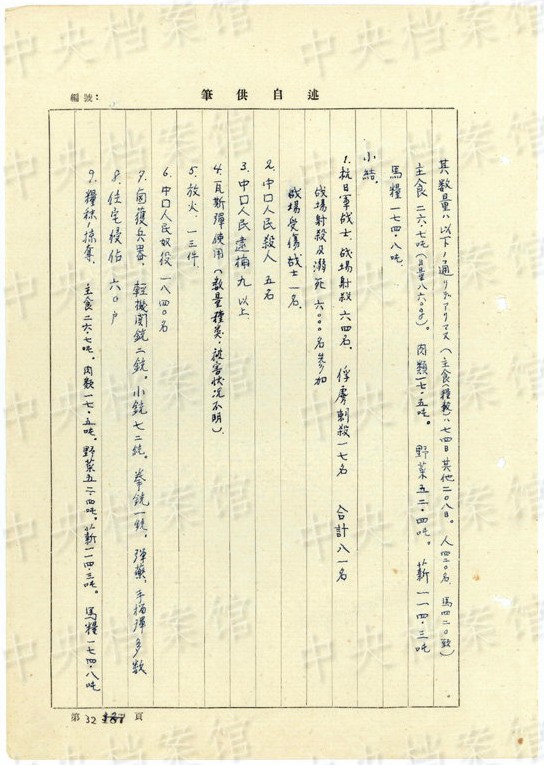 述自供筆
編號：
其数量ハ以下ノ通リデアリマス（主食（糧秣）ハ七四日其他二〇八日。人四二〇名、馬四二〇数）
主食二六.七吨（日量八六〇g）。肉類一七.五吨。野菜五二.四吨。薪一一四.三吨
馬糧一七四.八吨。
小結。
1. 抗日軍战士、战場射殺六四名、俘虜刺殺一七名 合計八一名
战場射殺及瀕死六〇〇〇名参加
战場受傷战士一名、
2. 中口人民殺人 五名
3. 中口人民逮捕九以上
4. 瓦斯弾使用（数量種类、被害状况不明）
5. 放火、一三件、
6. 中口人民奴役一八四〇名
7. 鹵获兵器、軽機関銃二銃。小銃七二銃。拳銃一銃、弾藥、手榴弾多数
8. 住宅侵佔 六〇戶
9. 糧秣掠奪、主食二六.七吨、肉類一七.五吨、野菜五二.四吨。薪一一四.三吨。馬糧一七四.八吨
第32頁
中央档案馆